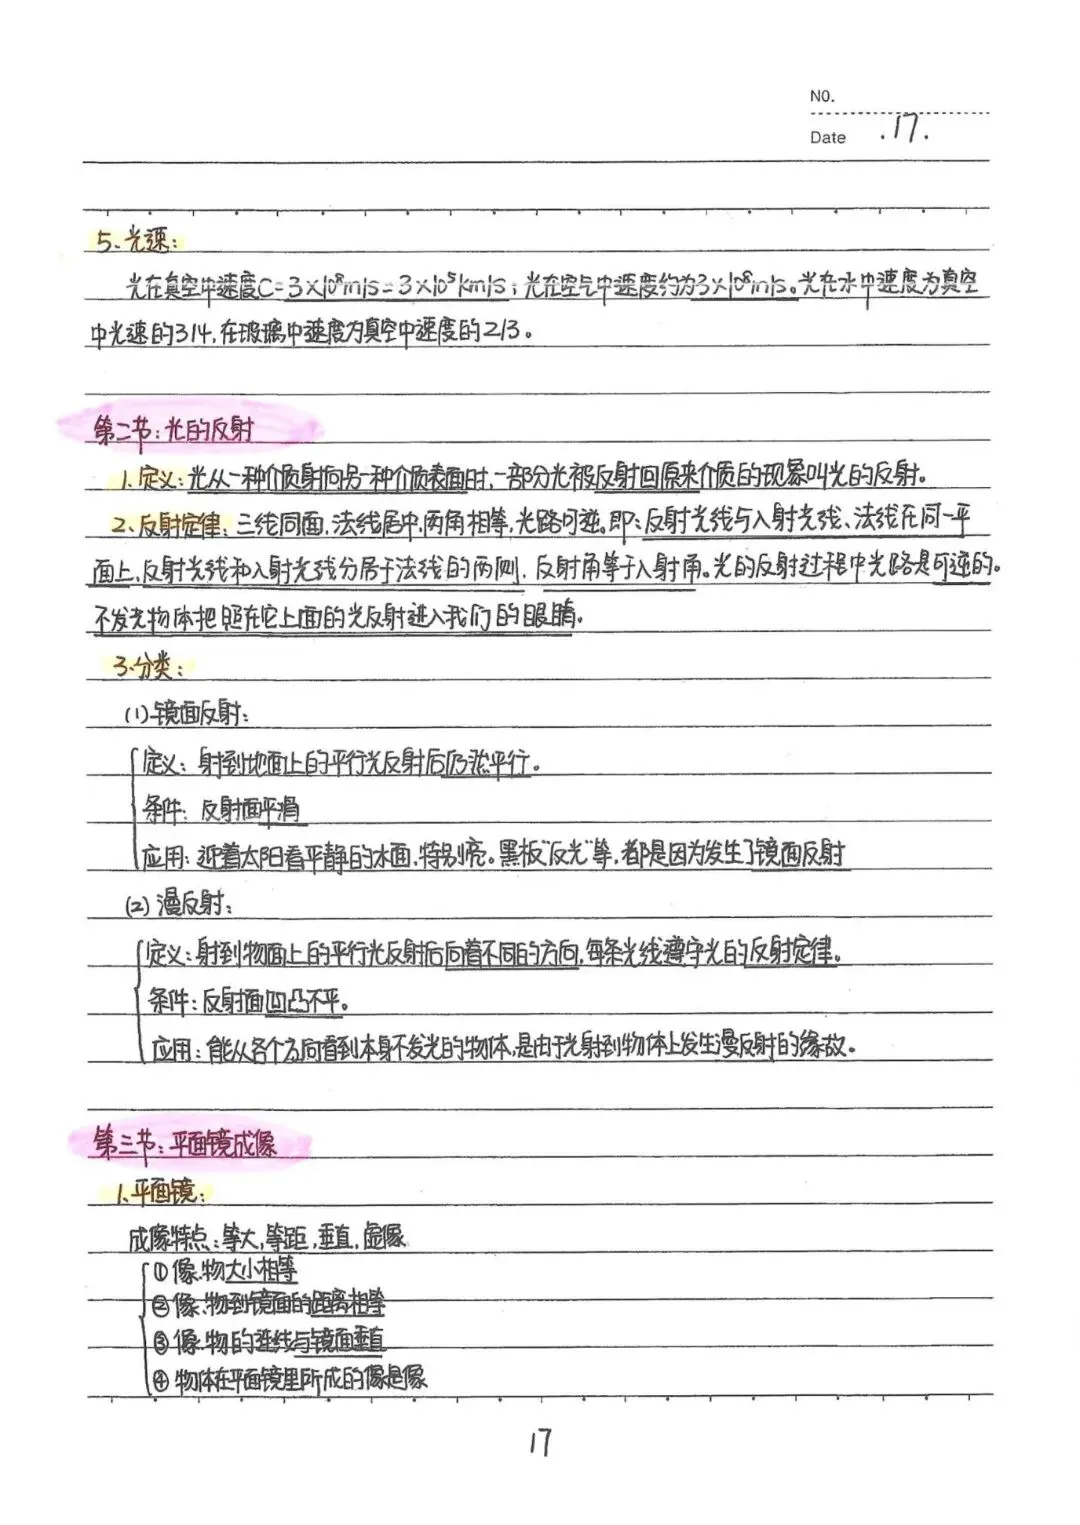 NO.
Date .17.
5、光速:
光在真空中速度C=3×10⁸m/s=3×10⁵km/s,光在空气中速度约为3×10⁸m/s。光在水中速度为真空
中光速的3/4,在玻璃中速度为真空中速度的2/3。
第二节:光的反射
1、定义:光从一种介质射向另一种介质表面时,一部分光被反射回原来介质的现象叫光的反射。
2、反射定律:三线同面,法线居中,两角相等,光路可逆。即:反射光线与入射光线、法线在同一平
面上,反射光线和入射光线分居于法线的两侧,反射角等于入射角。光的反射过程中光路是可逆的。
不发光物体把照在它上面的光反射进入我们的眼睛。
3.分类:
(1)镜面反射:
定义:射到地面上的平行光反射后仍然平行。
条件:反射面平滑
应用:迎着太阳看平静的水面,特别亮。黑板"反光"等,都是因为发生了镜面反射
(2)漫反射:
定义:射到物面上的平行光反射后向着不同的方向,每条光线遵守光的反射定律。
条件:反射面凹凸不平。
应用:能从各个方向看到本身不发光的物体,是由于光射到物体上发生漫反射的缘故。
第三节:平面镜成像
1、平面镜:
成像特点:等大,等距,垂直,虚像
①像、物大小相等
②像、物到镜面的距离相等
③像、物的连线与镜面垂直
④物体在平面镜里所成的像是像
17